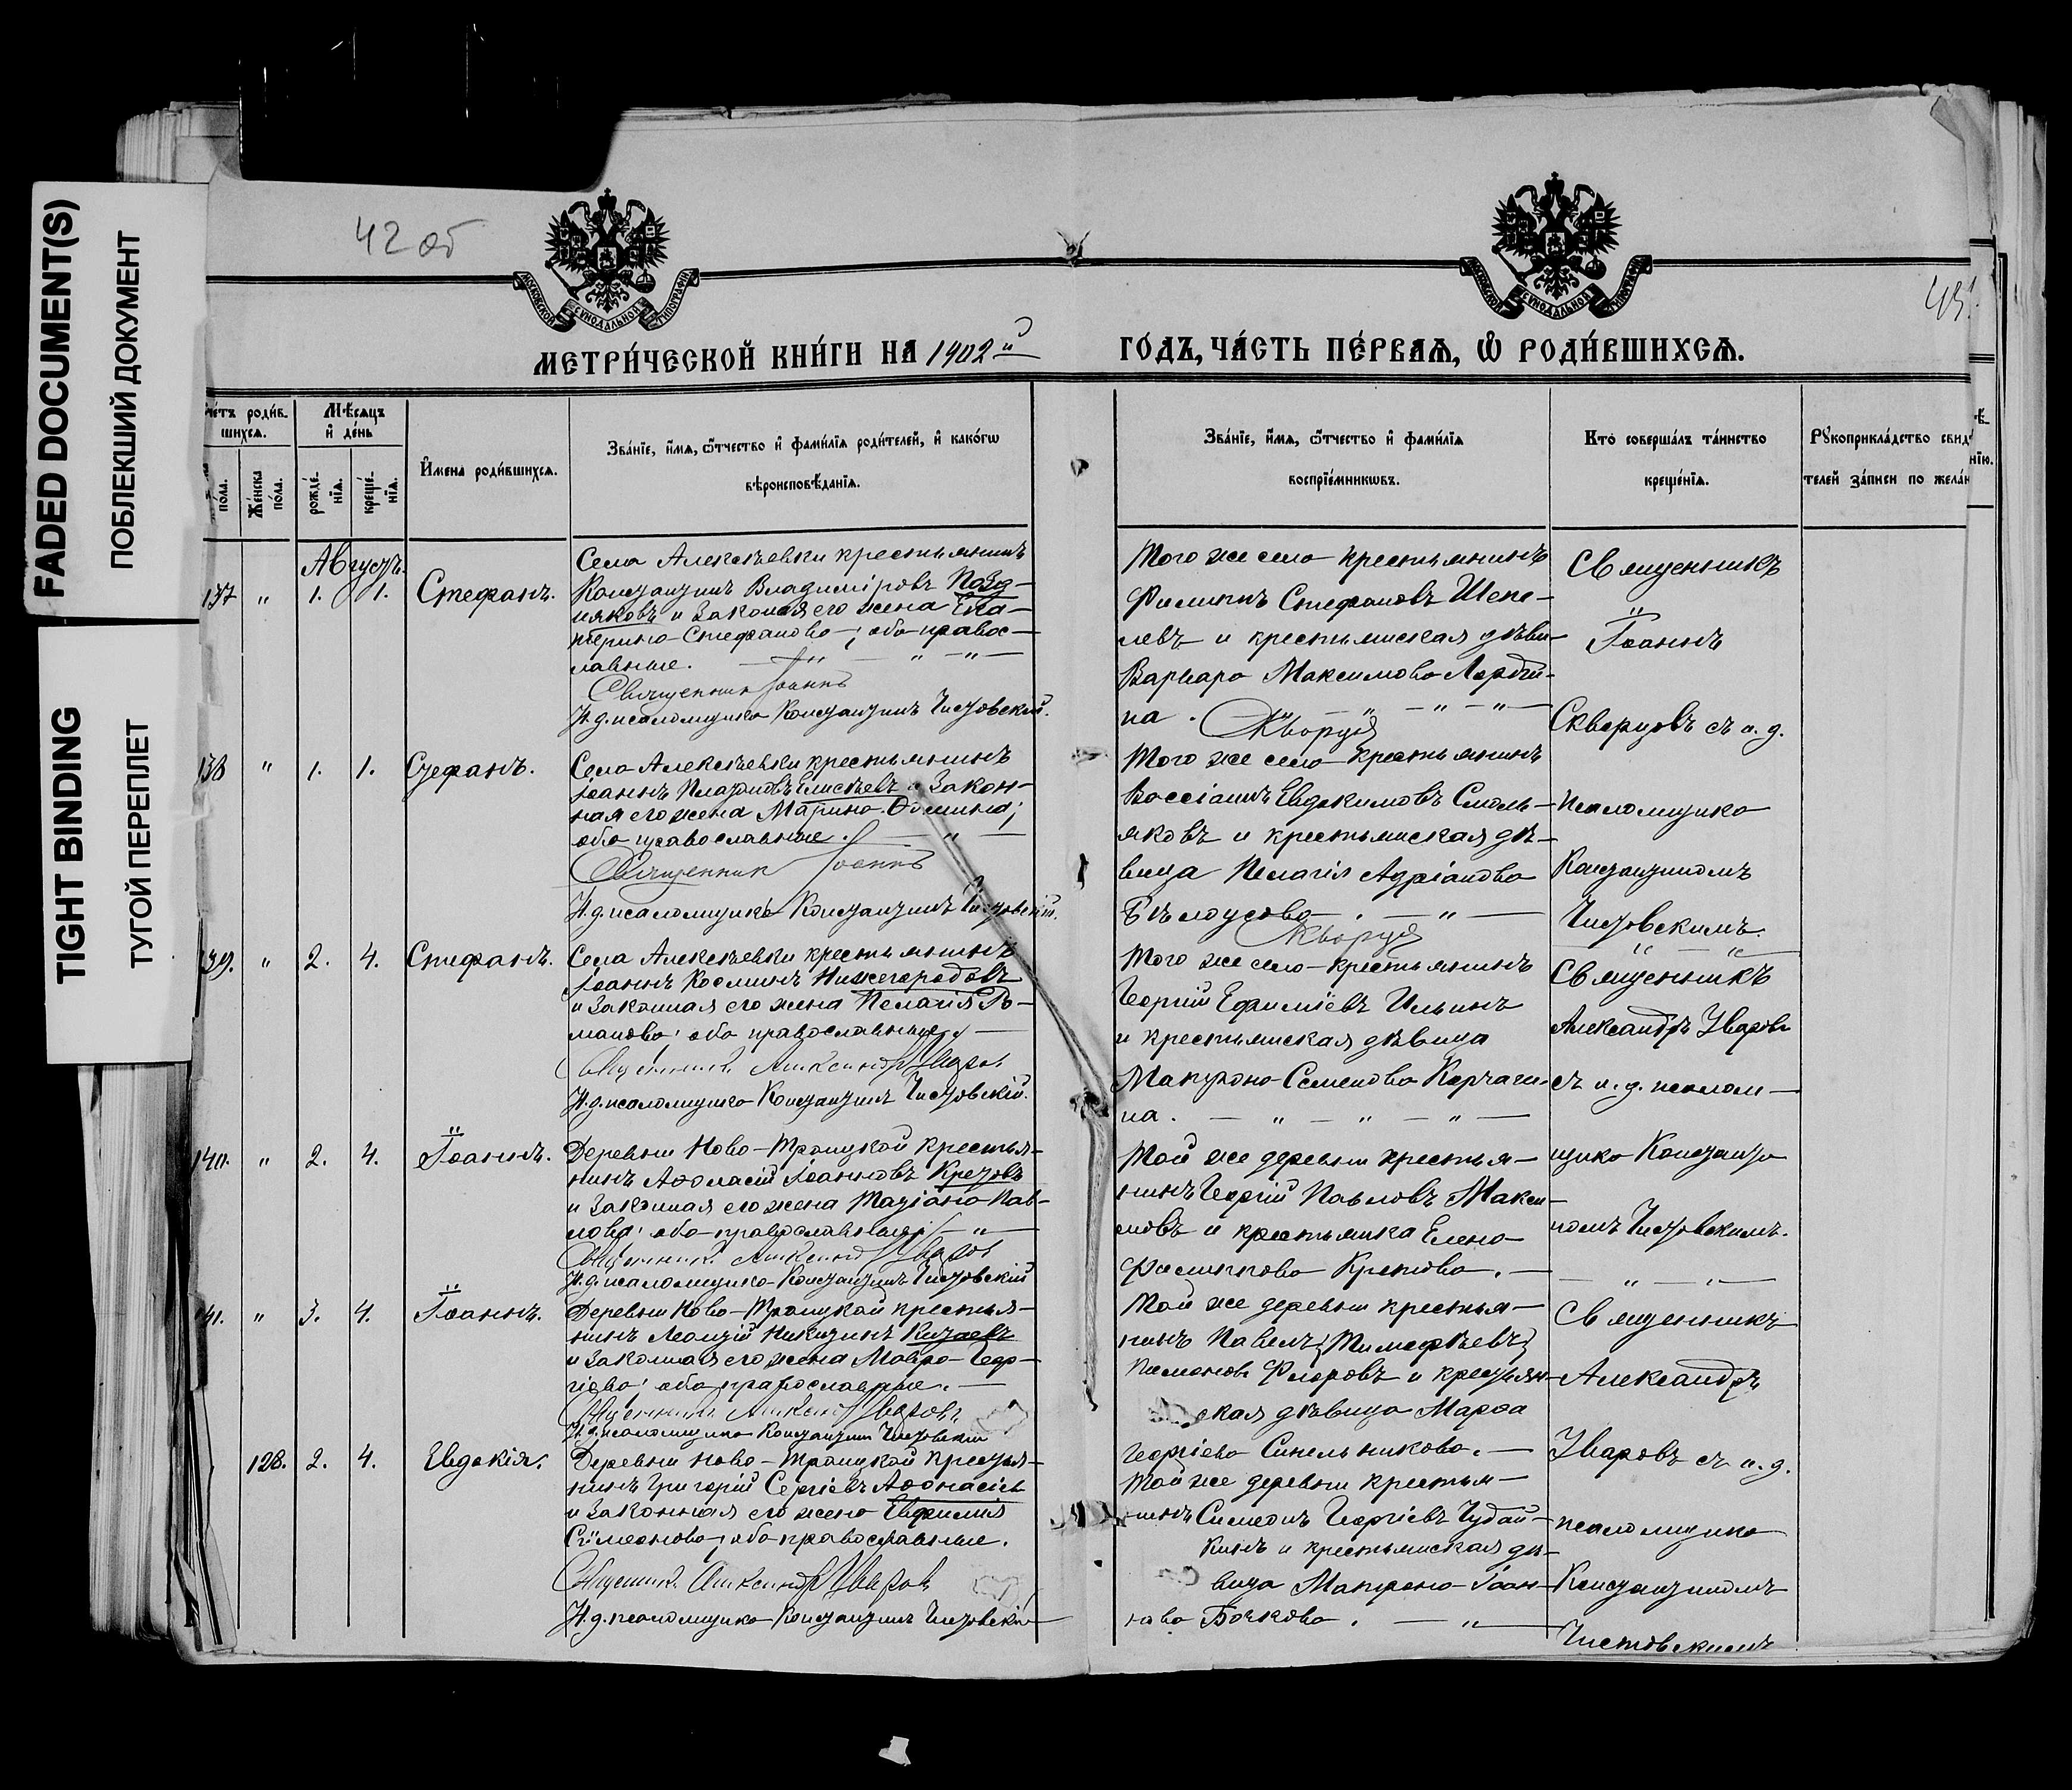 FADED DOCUMENT(S)
ПОБЛЕКШИЙ ДОКУМЕНТ
TIGHT BINDING
ТУГОЙ ПЕРЕПЛЕТ
42 об
МОСКОВСКОЙ СѴНОДАЛЬНОЙ ТИПОГРАФІИ
МОСКОВСКОЙ СѴНОДАЛЬНОЙ ТИПОГРАФІИ
МЕТРИ́ЧЕСКОЙ КНИ́ГИ НА 1902й
ГО́ДЪ, ЧА́СТЬ ПЕ́РВАѦ, Ѽ РОДИ́ВШИХСѦ.
роди́в-
шихсѧ.
по́ла.
Же́нска
по́ла.
Мѣ́сѧцъ
и҆ де́нь
рожде́-
нїѧ.
креще́-
нїѧ.
И҆мена роди́вшихсѧ.
Зва́нїе, и҆́мѧ, ѻ҆́тчество и҆ фами́лїѧ роди́телей, и҆ како́гѡ
вѣроисповѣ́данїѧ.
Зва́нїе, и҆́мѧ, ѻ҆́тчество и҆ фами́лїѧ
воспрїе́мникѡвъ.
Кто̀ соверша́лъ та́инство
креще́нїѧ.
Рꙋкоприкла́дство свид
телей за́писи по жела́н
Августъ.
137 " 1. 1. Стефанъ.
Села Алексѣевки крестьянинъ
Константинъ Владиміровъ Позд-
няковъ и законая его жена Ека-
терина Стефанова; оба правос-
лавные. — " — " — " —
Священник Іоаннъ
И. д. псаломщика Константинъ Чистовскій.
Того же села крестьянинъ
Филиппъ Стефановъ Шепе-
левъ и крестьянская дѣви-
Варвара Максимова
на. — " — " — " — " —
Скворцов
Священникъ
Іоаннъ
Скворцовъ съ и. д.
псаломщика
Константиномъ
Чистовскимъ.
138 " 1. 1. Стефанъ.
Села Алексѣевки крестьянинъ
Іоаннъ Платоновъ Елисѣевъ и закон-
ная его жена Марина Ѳомина;
оба православные. — " —
Священник Іоаннъ
И. д. псаломщика Константинъ Чистовскій.
Того же села крестьянинъ
Вассіанъ Евдокимовъ Смоль-
яковъ и крестьянская дѣ-
вица Пелагія Адріанова
Бѣлоусова. — " —
Скворцов
139. " 2. 4. Стефанъ.
Села Алексѣевки крестьянинъ
Іоаннъ Косминъ Нижегородовъ
и законная его жена Пелагія Ро-
манова; оба православные. —
Священникъ Александр Уваров
И. д. псаломщика Константинъ Чистовскій.
Того же села крестьянинъ
Георгій Ефиміевъ Ильинъ
и крестьянская дѣвица
Матрона Семенова Корчаги-
на. — " — " — " —
Священникъ
Александръ Уваровъ
съ и. д. псалом-
щика Констант
номъ Чистовскимъ.
— " — " —
140. " 2. 4. Іоаннъ.
Деревни Ново-Троицкой крестья-
нинъ Аѳонасій Іоанновъ Кретовъ
и законная его жена Татіана Пав-
лова; оба православные. — " —
Священник Александр Уваров
И. д. псаломщика Константинъ Чистовскій
Той же деревни крестья-
нинъ Георгій Павловъ Макси-
мовъ и крестьянка Елена
Филиппова Кретова. —
141. " 3. 4. Іоаннъ.
Деревни Ново-Троицкой крестья-
нинъ Леонтій Никитинъ Китаевъ
и законная его жена Мавра Геор-
гіева; оба православные. —
Священникъ Александр Уваровъ
И. д. псаломщика Константинъ Чистовскій
Той же деревни крестья-
нинъ Павелъ (Тимофѣевъ)
Флоровъ и крестьян-
ская дѣвица Марѳа
Георгіева Синельникова. —
Священникъ
Александръ
Уваровъ съ и. д.
псаломщика
Константиномъ
Чистовскимъ
128. 2. 4. Евдокія.
Деревни Ново-Троицкой крестья-
нинъ Григорій Сергіевъ Аѳонасіев
и законная его жена Евфимія
Симеонова; оба православные.
Священник Александр Уваров
И. д. псаломщика Константинъ Чистовскій
Той же деревни крестья-
нинъ Симеонъ Георгіевъ Чудай-
кинъ и крестьянская дѣ-
вица Матрона Іоан-
нова Бочкова. — " —